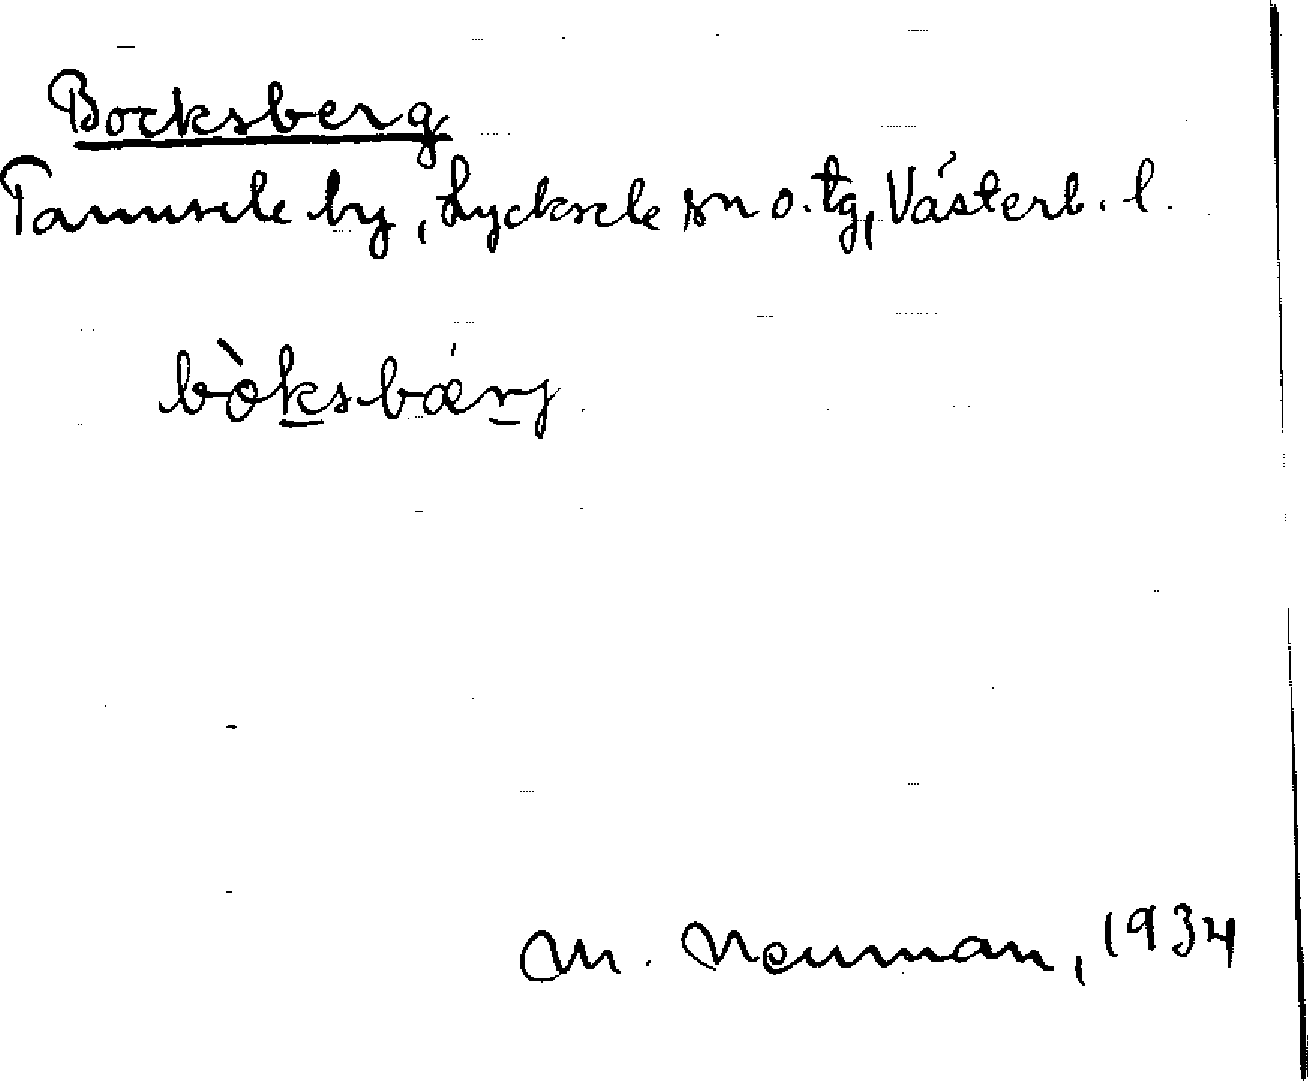 Bocksberg
Tannsele by, Lycksele sn o. tg, Västerb. l.
bòksbǽrj
M. Neuman, 1934